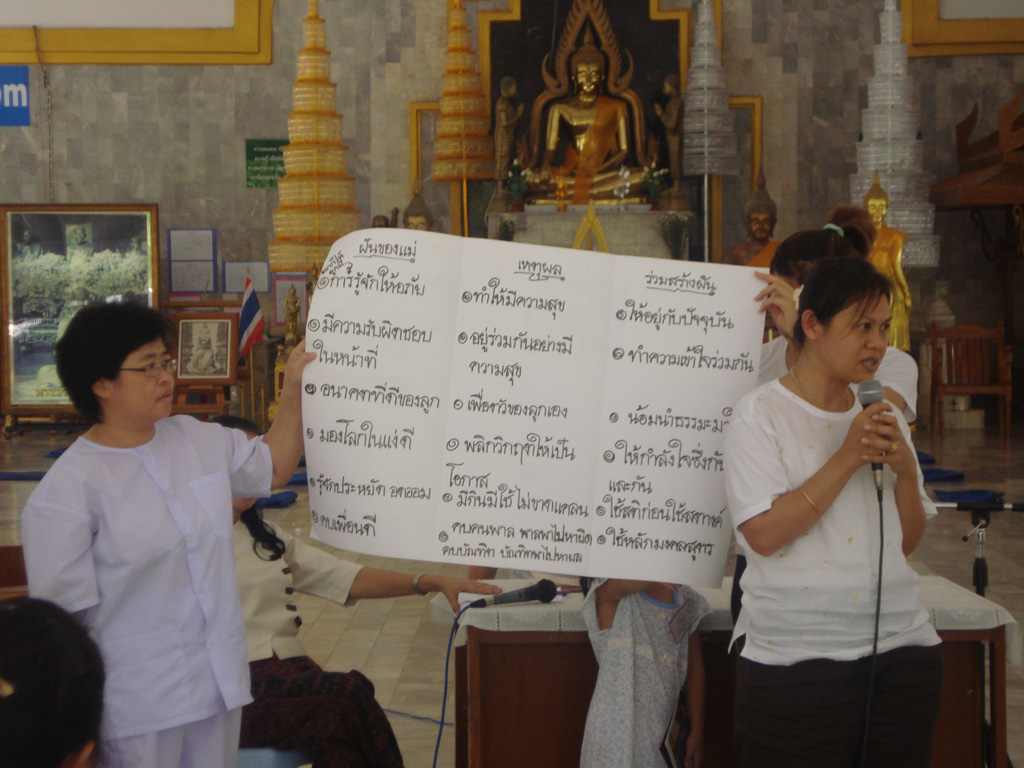 om
ฝันของแม่
การรู้จักให้อภัย
มีความรับผิดชอบ
ในหน้าที่
อนาคตที่ดีของลูก
มองโลกในแง่ดี
รู้จักประหยัด อดออม
คบเพื่อนดี
เหตุผล
ทำให้มีความสุข
อยู่ร่วมกันอย่างมี
ความสุข
เพื่อตัวของลูกเอง
พลิกวิกฤตให้เป็น
โอกาส
มีกินมีใช้ ไม่ขาดแคลน
คบคนพาล พาลพาไปหาผิด
คบบัณฑิต บัณฑิตพาไปหาผล
ร่วมสร้างฝัน
ให้อยู่กับปัจจุบัน
ทำความเข้าใจร่วมกัน
น้อมนำธรรมะ
ให้กำลังใจซึ่งกัน
และกัน
ใช้สติก่อนใช้สตางค์
ใช้หลักมงคลสูตร